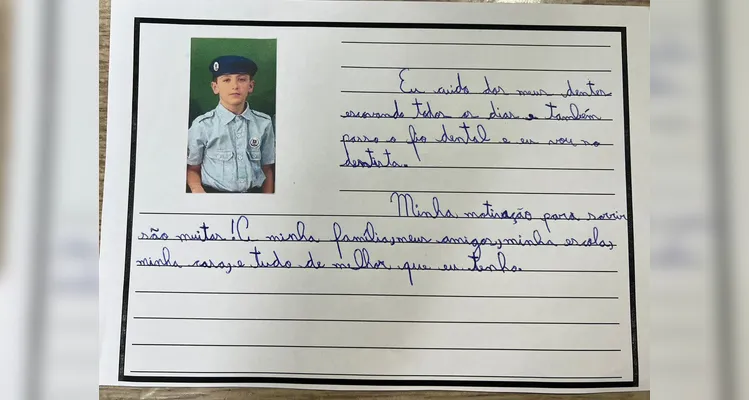 Eu cuido dos meus dentes
escovando todos os dias e também
passo o fio dental e eu vou no
dentista.
Minha motivação para sorrir
são muitas! A minha família, meus amigos, minha escola,
minha casa, e tudo de melhor que eu tenho.